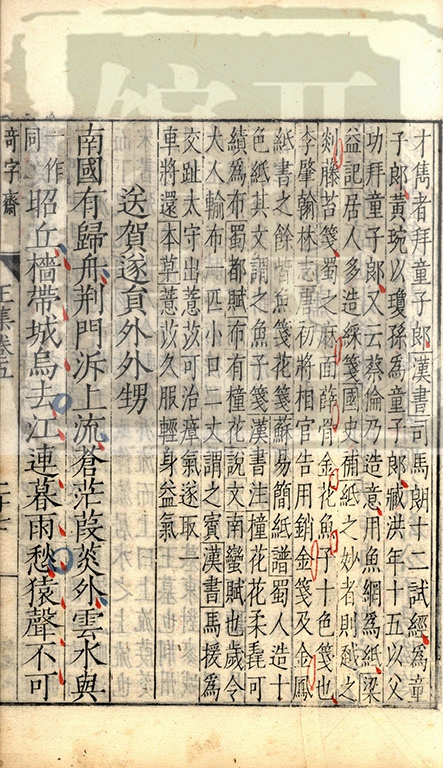 才雋者拜童子郎漢書司馬朗十二試經爲童
子郎黃琬以瓊孫爲童子郎臧洪年十五以父
功拜童子郎又云蔡倫乃造意用魚網爲紙梁
益記居人多造綵箋國史補紙之妙者則越之
剡藤苔箋蜀之麻面薛骨金花魚子十色箋也
李肇翰林志唐初將相官告用銷金箋及金鳳
紙書之餘皆魚箋花箋蘇易簡紙譜蜀人造十
色紙其文謂之魚子箋漢書注橦花花柔毳可
績爲布蜀都賦布有橦花說文南蠻賦也歲令
大人輸布一匹小口二丈謂之賨漢書馬援爲
交趾太守出薏苡可治瘴氣遂取
車將還本草薏苡久服輕身益氣
送賀遂員外外甥
南國有歸舟荆門泝上流蒼茫葭菼外雲水與
一作同昭丘檣帶城烏去江連暮雨愁猿聲不可
奇字齋
王集卷五